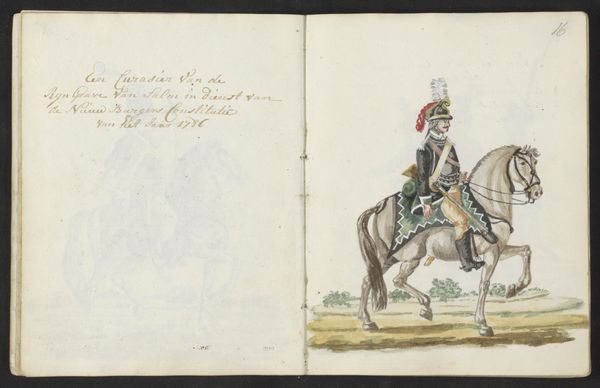 Een Curasier van de
Ryn Grave van Salm in dienst van
de Nieuw Burgers Constitutie
van het Jaar 1786
16